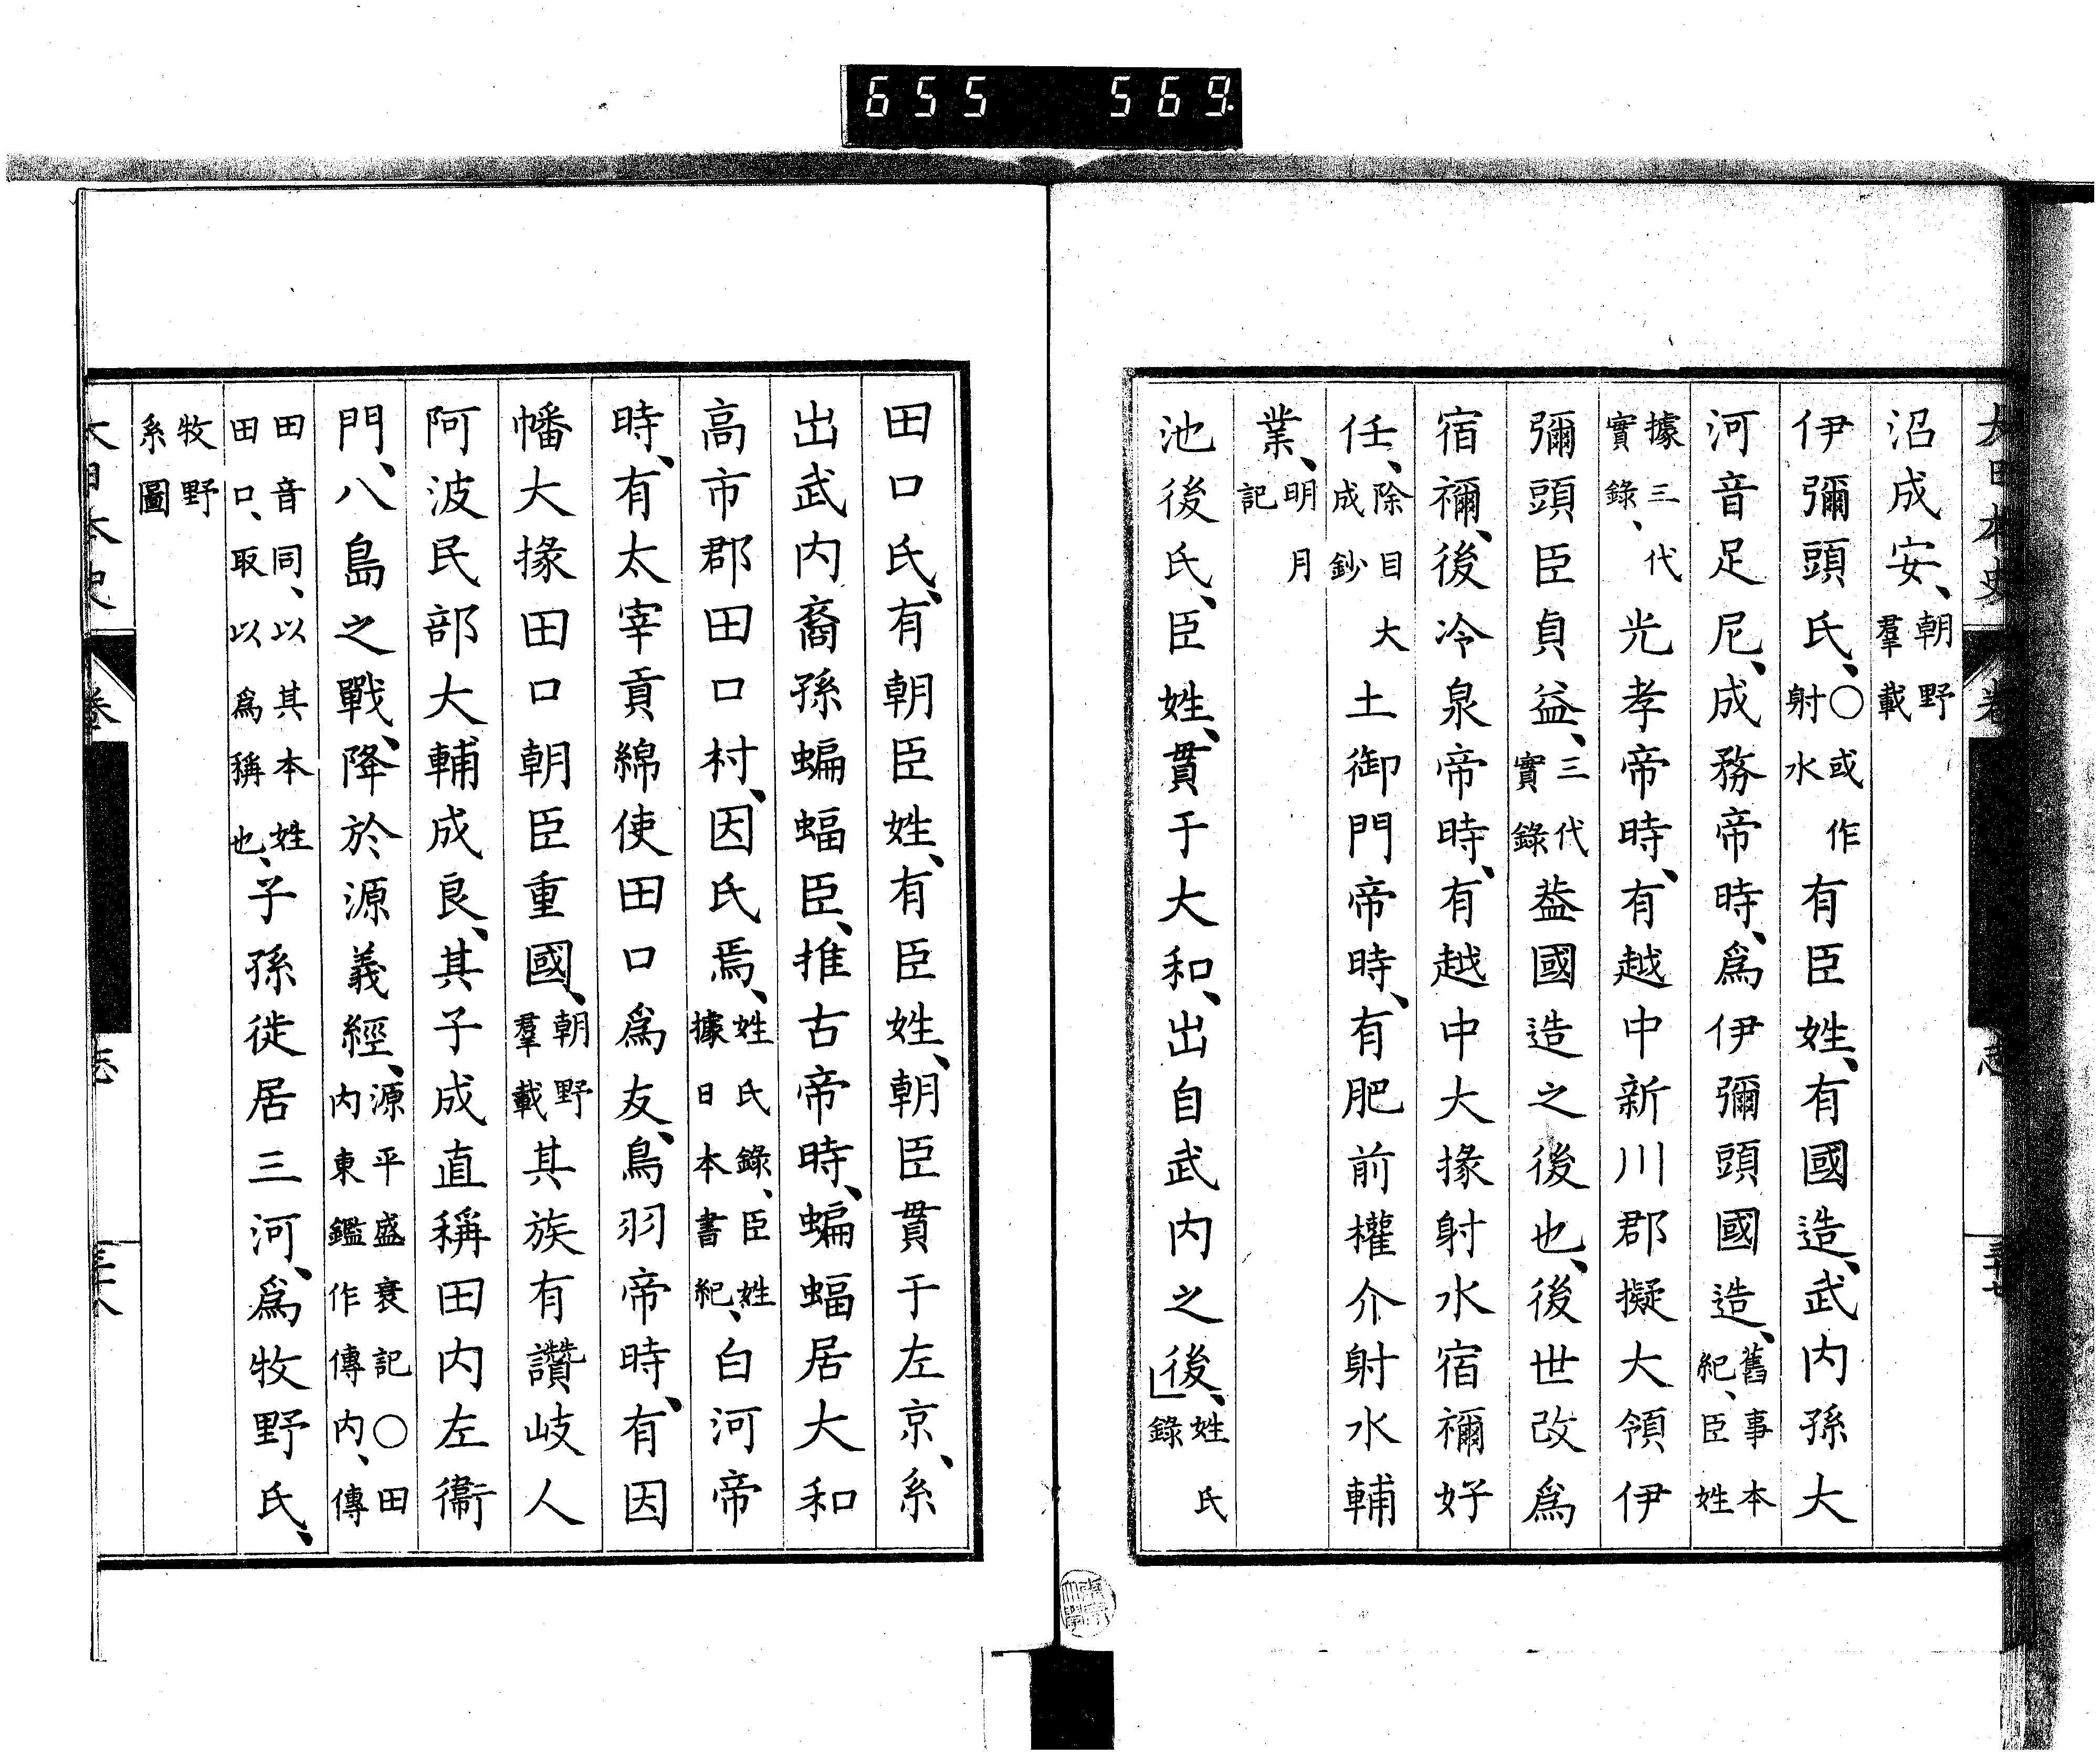 655 569
大日本史 卷 志 三十七
沼成安、朝野羣載
伊彌頭氏、○或作射水有臣姓、有國造、武内孫大
河音足尼、成務帝時、爲伊彌頭國造、舊事本紀、臣姓
據三代實錄、光孝帝時、有越中新川郡擬大領伊
彌頭臣貞益、三代實錄葢國造之後也、後世改爲
宿禰、後冷泉帝時、有越中大掾射水宿禰好
任、除目大成鈔土御門帝時、有肥前權介射水輔
業、明月記
池後氏、臣姓、貫于大和、出自武内之後、姓氏錄
田口氏、有朝臣姓、有臣姓、朝臣貫于左京、系
出武内裔孫蝙蝠臣、推古帝時、蝙蝠居大和
高市郡田口村、因氏焉、姓氏錄、臣姓據日本書紀、白河帝
時、有太宰貢綿使田口爲友、鳥羽帝時、有因
幡大掾田口朝臣重國、朝野羣載其族有讚岐人
阿波民部大輔成良、其子成直稱田内左衞
門、八島之戰、降於源義經、源平盛衰記○田内東鑑作傳内、傳
田音同、以其本姓田口、取以爲稱也、子孫徙居三河、爲牧野氏、
牧野系圖
大日本史 卷 志 三十八